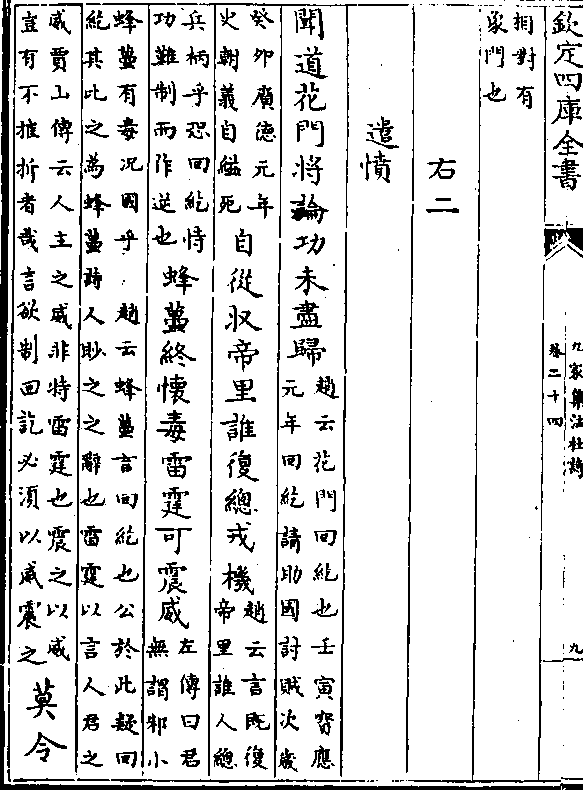 欽定四庫全書
九家集注杜詩
卷二十四
九
相對有
家門也
右二
遣憤
聞道花門將論功未盡歸
趙云花門回紇也壬寅寳應
元年回紇請助國討賊次歲
癸卯廣德元年
史朝義自縊死
自從収帝里誰復總戎機
趙云言既復
帝里誰人總
兵柄乎恐回紇恃
功難制而作逆也
蜂蠆終懷毒雷霆可震威
左傳曰君
無謂邾小
蜂蠆有毒况國乎
趙云蜂蠆言回紇也公於此疑回
紇其此之為蜂蠆詩人眇之之辭也雷霆以言人君之
威賈山傳云人主之威非特雷霆也震之以威
豈有不摧折者哉言欲制回訖必須以威震之
莫令